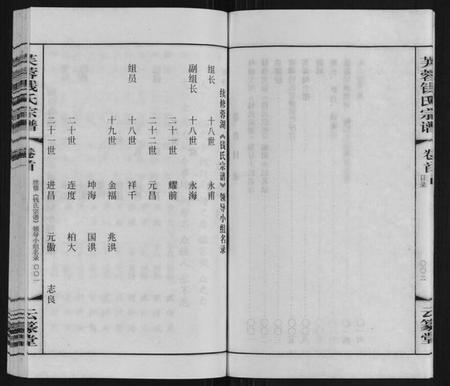 芙蓉钱氏宗谱
卷首
目录
〇〇二
云篆堂
续修蓉湖《钱氏宗谱》领导小组名录
组长 十八世 永甫
副组长 十八世 永海
二十一世 耀前
组员 二十二世 元昌
十八世 祥千
十九世 金福 兆洪
坤海 国洪
二十世 连度 柏大
二十一世 进昌 元傲 志良
芙蓉钱氏宗谱
卷首
续修《钱氏宗谱》领导小组名录
〇〇一
云篆堂